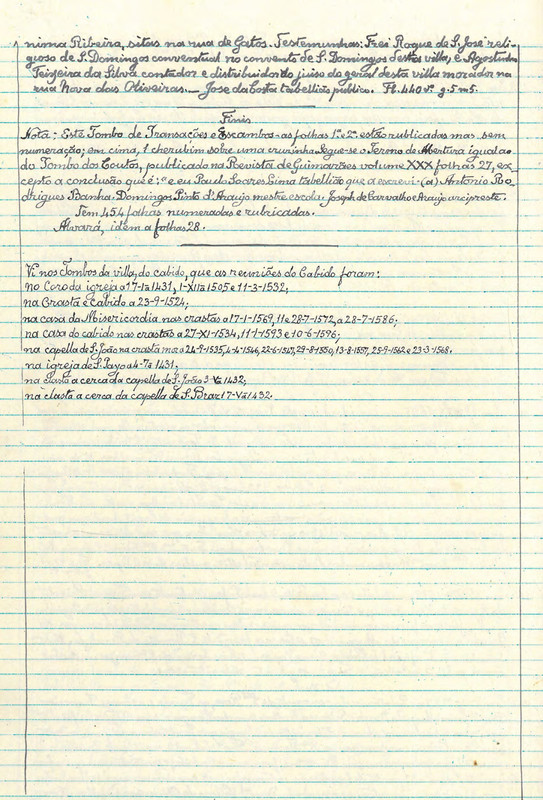 nima Ribeira, sitas na rua de Gatos. Testemunhas: Frei Roque de S. José reli-
gioso de S. Domingos conventual no convento de S. Domingos desta villa, e Agostinho
Teixeira da Silva contador e distribuidor do juiso do geral desta villa morador na
rua Nova das Oliveiras. — Jose da Costa tabellião publico. Fl. 440 vº. g. 5 m 5.
Finis
Nota: Este Tombo de Transações e Escambos - as folhas 1ª e 2ª estão rubricadas mas sem
numeração; em cima, 1 cherubim sobre uma cruzinha. Segue-se o Termo de Abertura igual ao
do Tombo dos Coutos, publicado na Revista de Guimarães volume XXX folhas 27, ex-
cepto a conclusão que é: "e eu Paulo Soares Lima tabellião que a escrevi. (a) Antonio Ro-
drigues Banha. Domingos Pinto d'Araujo mestre escola. Joseph de Carvalho Araujo arcipreste.
Tem 454 folhas numeradas e rubricadas.
Alvará, idem a folhas 28.
Vi nos Tombos da villa, do cabido, que as reuniões do Cabido foram:
no Coro da igreja a 17-1º-1431, 1-XII-1505 e 11-3-1532,
na Crasta e Cabido a 23-9-1524;
na casa da Misericordia nas crastas a 17-1-1569, 11 e 28-7-1572, a 28-7-1586;
na casa do cabido nas crastas a 27-XI-1534, 11-1-1593 e 10-6-1596;
na capella de S. João na crasta mor a 24-9-1535, 4-6-1546, 22-6-1547, 29-8-1550, 13-8-1557, 25-9-1562 e 23-3-1568.
na igreja de S. Payo a 4-7º-1431,
na clasta a cerca da capella de S. João 3-Vº-1432;
na clasta a cerca da capella de S. Braz 17-Vº-1432.